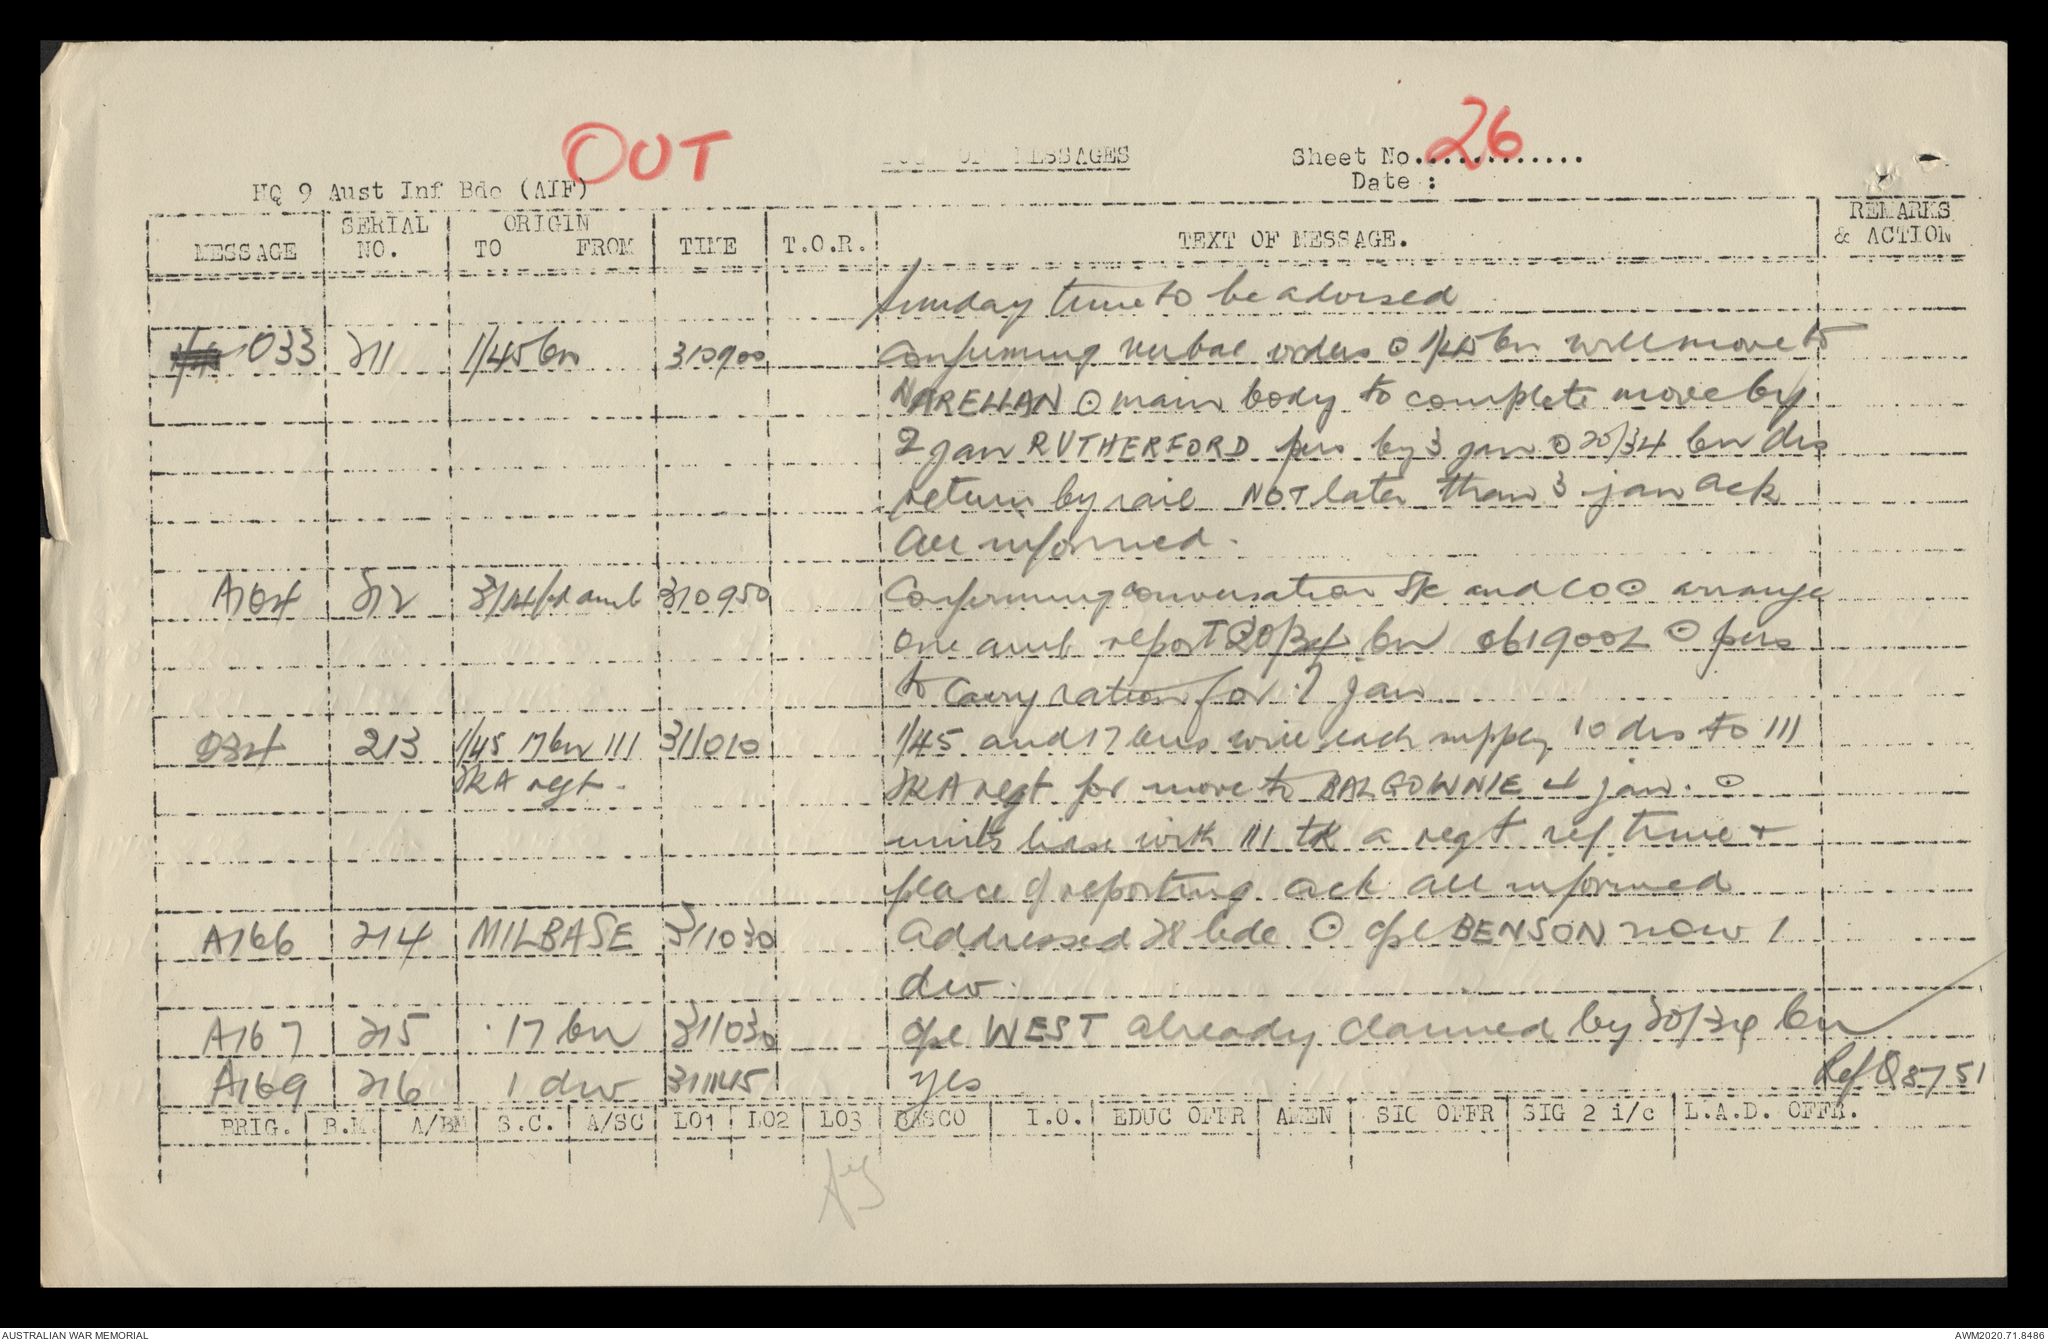 OUT
LOG OF MESSAGES
Sheet No. 26
Date :
HQ 9 Aust Inf Bde (AIF)
MESSAGE SERIAL NO. ORIGIN TO FROM TIME T.O.R. TEXT OF MESSAGE. REMARKS & ACTION
Sunday time to be advised
033 211 1/45 bn 310900 Confirming verbal orders ⊙ 1/45 bn will move to
NARELLAN ⊙ main body to complete move by
2 jan RUTHERFORD pers by 3 jan ⊙ 20/34 bn drs
return by rail NOT later than 3 jan ack
All informed.
A164 212 3/14 fd amb 310950 Confirming conversation SC and CO ⊙ arrange
one amb report 20/34 bn 061900L ⊙ pers
to carry ration for 7 jan
034 213 1/45 17 bn 111 311010 1/45 and 17 bns will each supply 10 drs to 111
TKA regt. TKA regt for move to BALGOWNIE 4 jan. ⊙
units liase with 111 tk a regt ref time +
place of reporting ack all informed
A166 214 MILBASE 311030 Addressed 28 bde ⊙ cpl BENSON now 1
div.
A167 215 17 bn 311030 cpl WEST already claimed by 20/34 bn
A169 216 1 div 311145 yes Ref Q8751
BRIG. B.M. A/BM S.C. A/SC LO1 LO2 LO3 BASCO I.O. EDUC OFFR AMEN SIG OFFR SIG 2 i/c L.A.D. OFFR.
AUSTRALIAN WAR MEMORIAL
AWM2020.71.8486